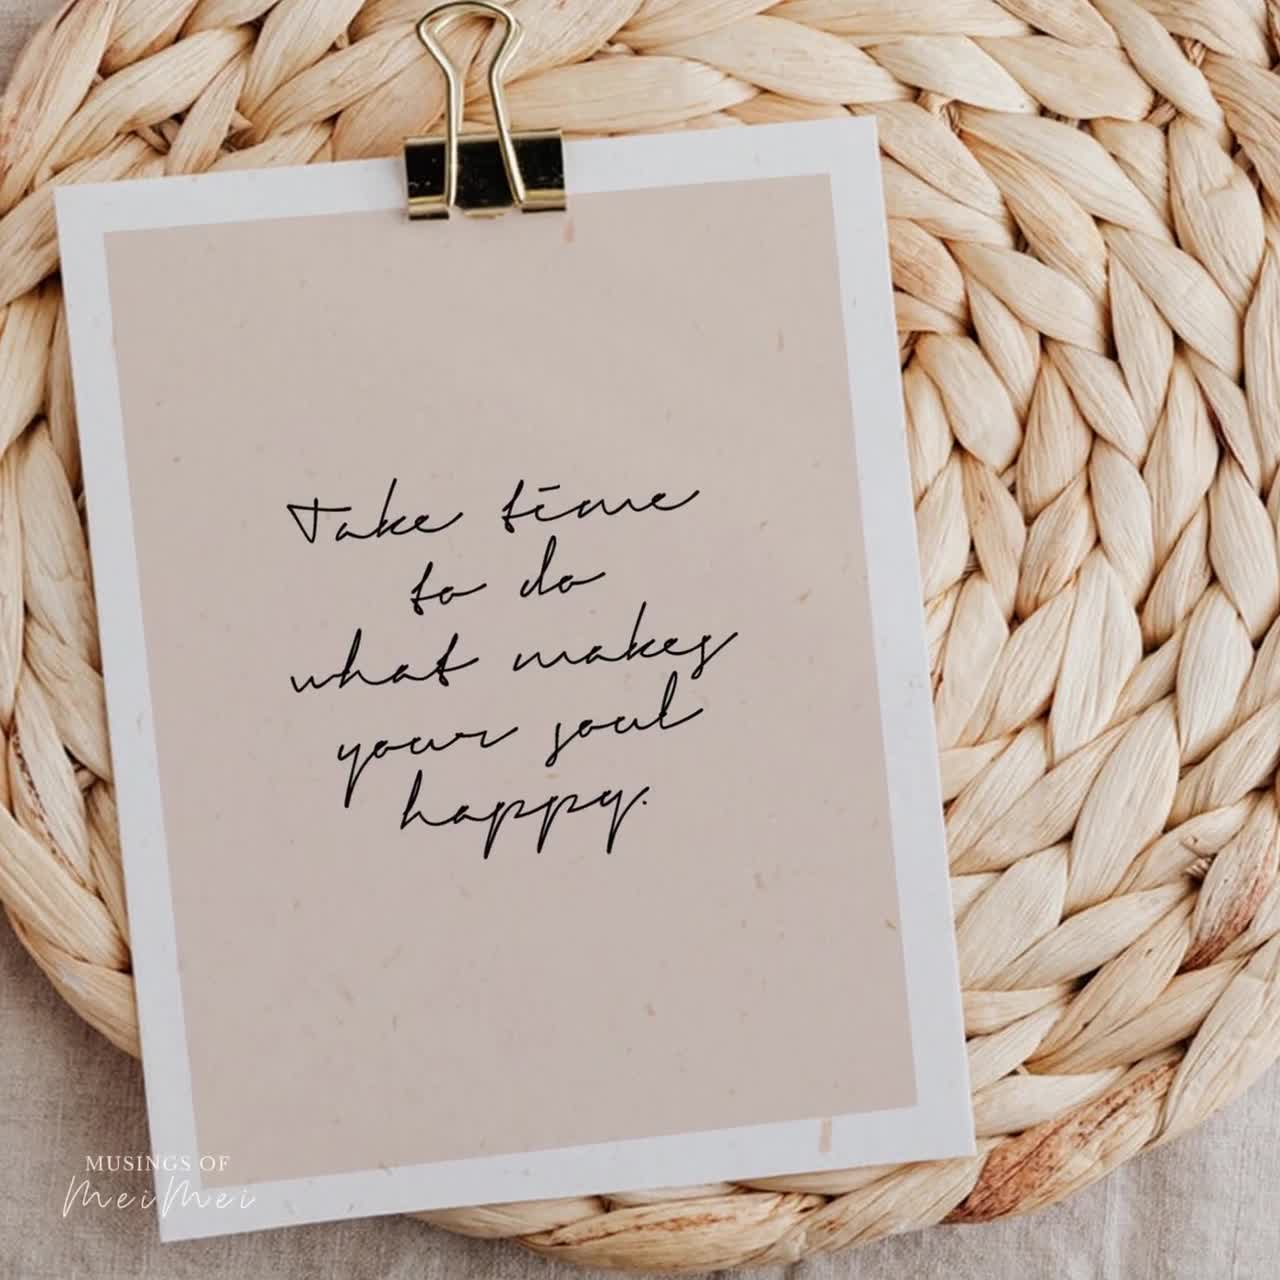 Take time
to do
what makes
your soul
happy.
MUSINGS OF
MeiMei